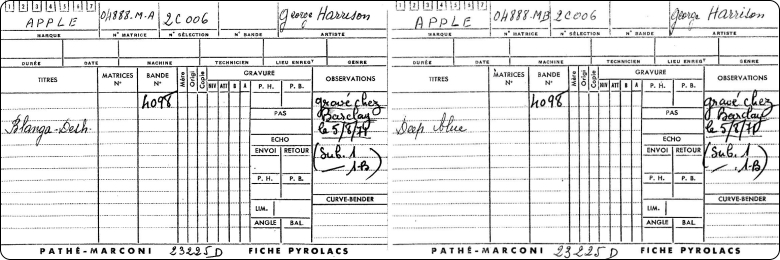 1 2 3 4 5 6 7
APPLE
04888.M-A
2C006
George Harrison
MARQUE
N° MATRICE
N° SÉLECTION
N° BANDE
ARTISTE
DURÉE
DATE
MACHINE
TECHNICIEN
LIEU ENREGT
GENRE
TITRES
MATRICES N°
BANDE N°
Mère
Origi
Copie
GRAVURE
NIV ATT B A
P. H.
P. B.
OBSERVATIONS
4098
gravé chez
Barclay
le 5/8/71
(Sub. 1
1-B)
Blanga-Desh.
PAS
ECHO
ENVOI
RETOUR
P. H.
P. B.
LIM.
ANGLE
BAL.
CURVE-BENDER
PATHÉ-MARCONI
23225 D
FICHE PYROLACS
1 2 3 4 5 6 7
APPLE
04888.MB
2C006
George Harrison
MARQUE
N° MATRICE
N° SÉLECTION
N° BANDE
ARTISTE
DURÉE
DATE
MACHINE
TECHNICIEN
LIEU ENREGT
GENRE
TITRES
MATRICES N°
BANDE N°
Mère
Origi
Copie
GRAVURE
NIV ATT B A
P. H.
P. B.
OBSERVATIONS
4098
gravé chez
Barclay
le 5/8/71
(Sub. 1
1-B)
Deep blue
PAS
ECHO
ENVOI
RETOUR
P. H.
P. B.
LIM.
ANGLE
BAL.
CURVE-BENDER
PATHÉ-MARCONI
23225 D
FICHE PYROLACS